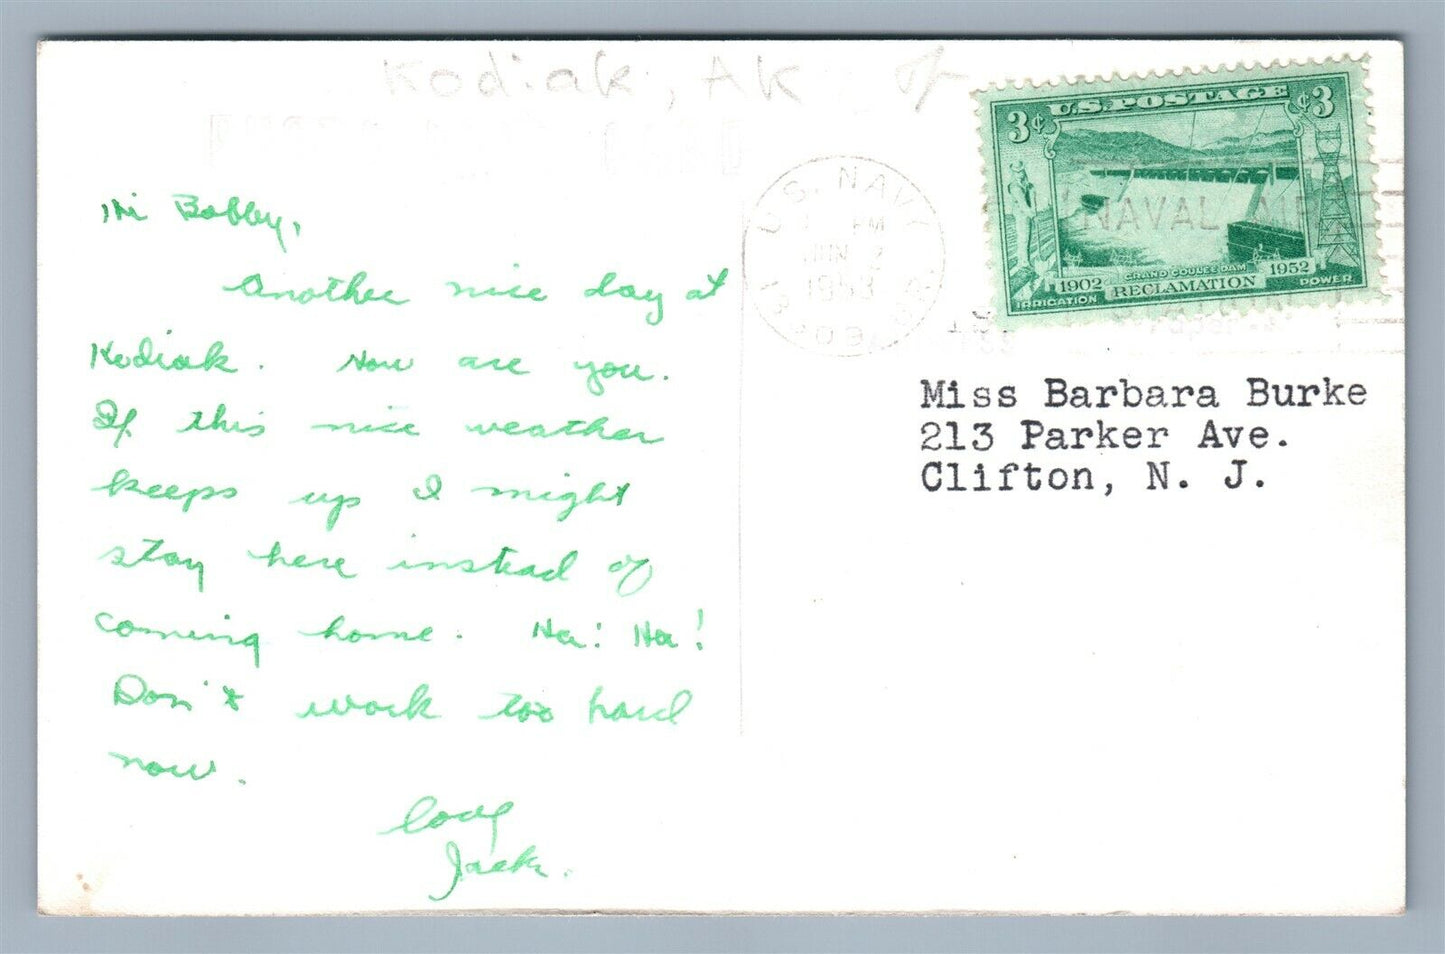 Kodiak, AK
U.S. NAVY
PM
JUN 2
1953
U.S. POSTAGE
3¢ ¢3
NAVAL AIR
GRAND COULEE DAM
1902 RECLAMATION 1952
IRRIGATION POWER
Hi Bobby,
Another nice day at
Kodiak. How are you.
If this nice weather
keeps up I might
stay here instead of
coming home. Ha! Ha!
Don't work too hard
now.
Love
Jack.
Miss Barbara Burke
213 Parker Ave.
Clifton, N. J.